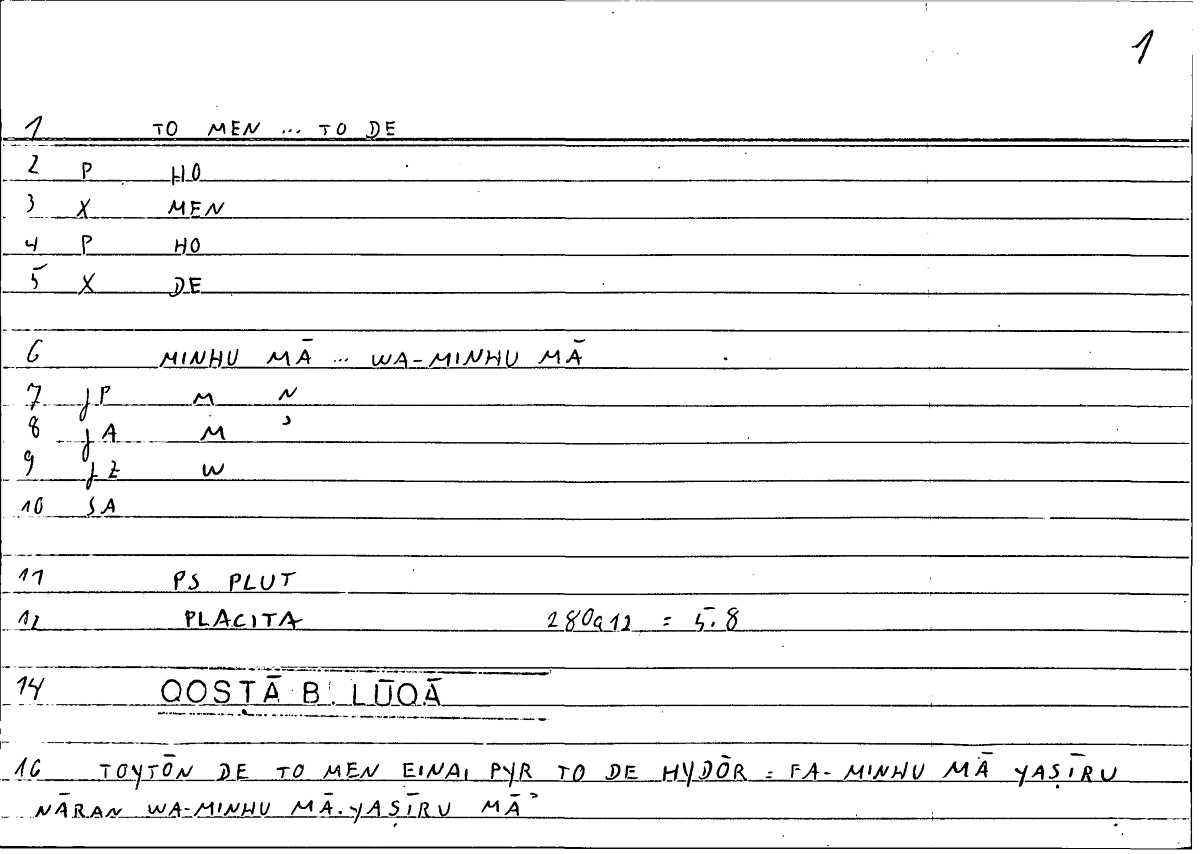 1
1 TO MEN ... TO DE
2 P HO
3 X MEN
4 P HO
5 X DE
6 MINHU MĀ ... WA-MINHU MĀ
7 JP M N
8 JA M ʾ
9 JZ W
10 SA
11 PS PLUT
12 PLACITA 280a12 = 5.8
14 QOSṬĀ B. LŪQĀ
16 TOYTŌN DE TO MEN EINAI PYR TO DE HYDŌR = FA-MINHU MĀ YAṢĪRU
NĀRAN WA-MINHU MĀ YAṢĪRU MĀʾ